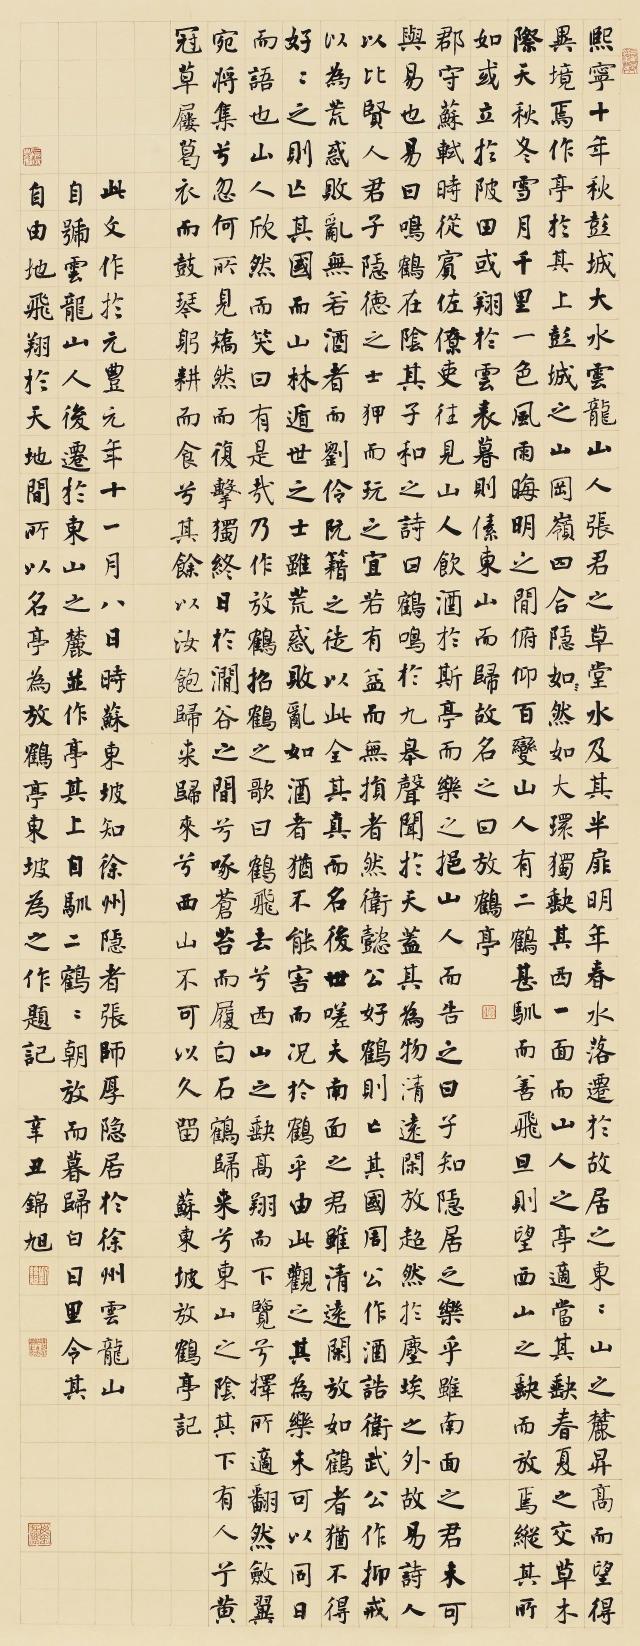 熙寧十年秋彭城大水雲龍山人張君之草堂水及其半扉明年春水落遷於故居之東〻山之麓昇高而望得
異境焉作亭於其上彭城之山岡嶺四合隱如〻然如大環獨缺其西一面而山人之亭適當其缺春夏之交草木
際天秋冬雪月千里一色風雨晦明之間俯仰百變山人有二鶴甚馴而善飛旦則望西山之缺而放焉縱其所
如或立於陂田或翔於雲表暮則傃東山而歸故名之曰放鶴亭
郡守蘇軾時從賓佐僚吏往見山人飲酒於斯亭而樂之挹山人而告之曰子知隱居之樂乎雖南面之君未可
與易也易曰鳴鶴在陰其子和之詩曰鶴鳴於九皋聲聞於天蓋其為物清遠閑放超然於塵埃之外故易詩人
以比賢人君子隱德之士狎而玩之宜若有益而無損者然衛懿公好鶴則亡其國周公作酒誥衛武公作抑戒
以為荒惑敗亂無若酒者而劉伶阮籍之徒以此全其真而名後世嗟夫南面之君雖清遠閑放如鶴者猶不得
好〻之則亡其國而山林遁世之士雖荒惑敗亂如酒者猶不能害而況於鶴乎由此觀之其為樂未可以同日
而語也山人欣然而笑曰有是哉乃作放鶴招鶴之歌曰鶴飛去兮西山之缺高翔而下覽兮擇所適翻然斂翼
宛將集兮忽何所見矯然而復擊獨終日於澗谷之間兮啄蒼苔而履白石鶴歸來兮東山之陰其下有人兮黃
冠草屨葛衣而鼓琴躬耕而食兮其餘以汝飽歸來歸來兮西山不可以久留 蘇東坡放鶴亭記
此文作於元豐元年十一月八日時蘇東坡知徐州隱者張師厚隱居於徐州雲龍山
自號雲龍山人後遷於東山之麓並作亭其上自馴二鶴〻朝放而暮歸白日里令其
自由地飛翔於天地間所以名亭為放鶴亭東坡為之作題記 辛丑錦旭